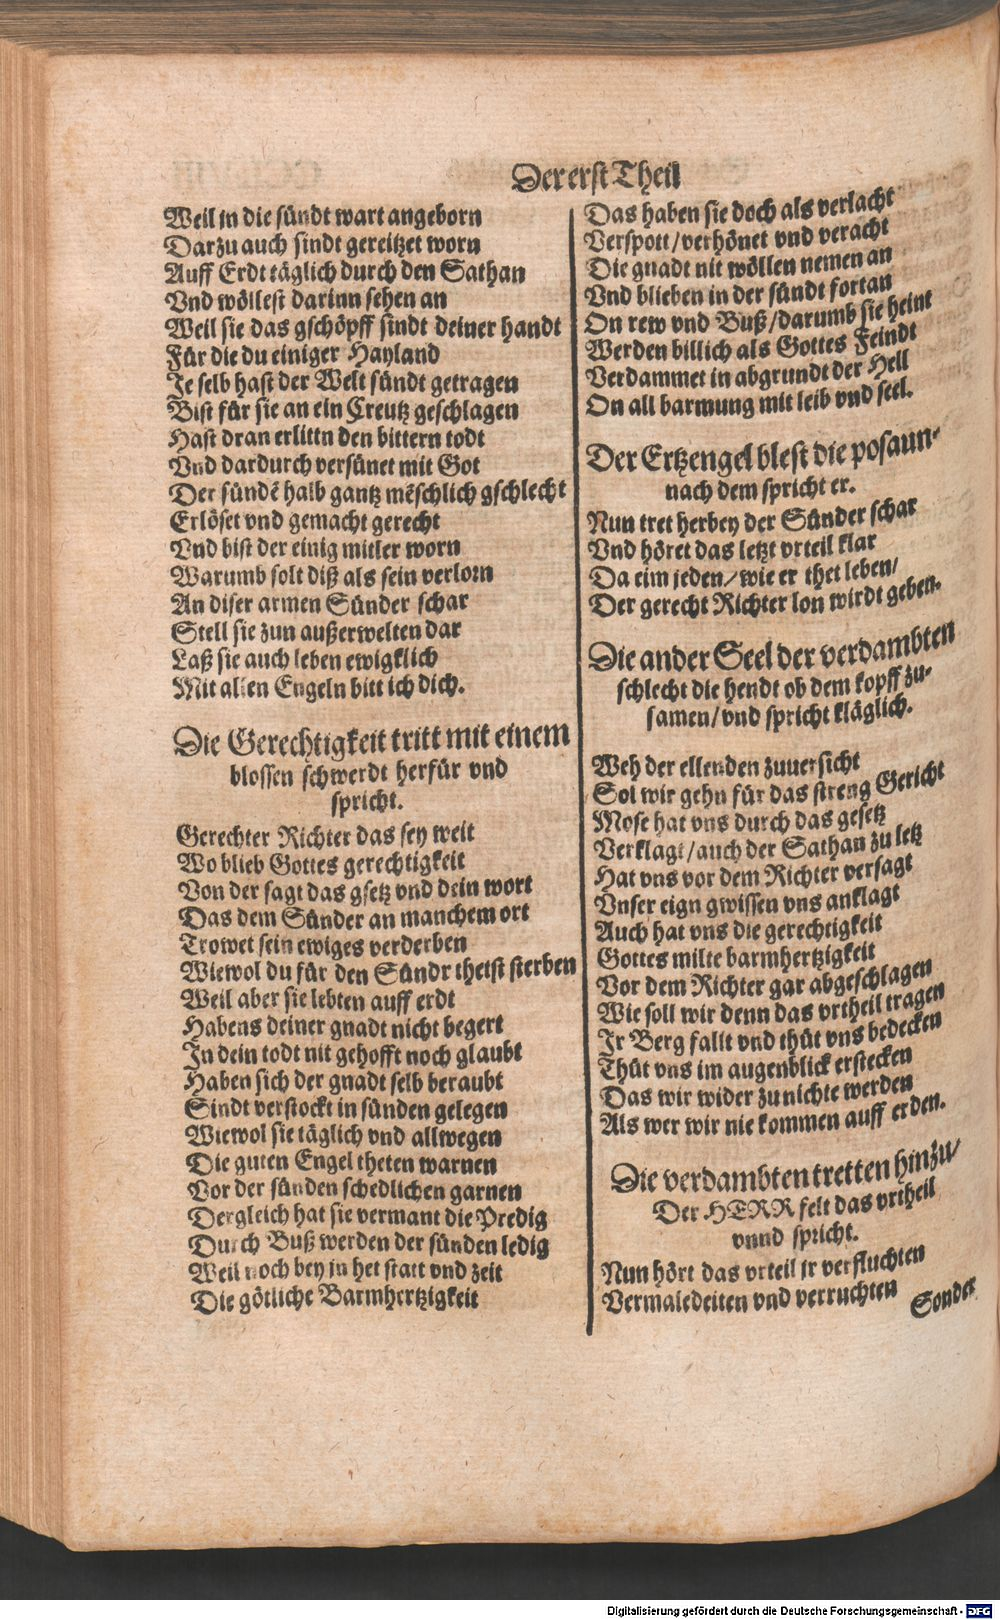 Der erst Theil
Weil in die sündt wart angeborn
Darzu auch sindt gereitzet worn
Auff Erdt täglich durch den Sathan
Vnd wöllest darinn sehen an
Weil sie das gschöpff sindt deiner handt
Für die du einiger Hayland
Je selb hast der Welt sündt getragen
Bist für sie an ein Creutz geschlagen
Hast dran erlittn den bittern todt
Vnd dardurch versünet mit Got
Der sündẽ halb gantz mẽschlich gschlecht
Erlöset vnd gemacht gerecht
Vnd bist der einig mitler worn
Warumb solt diß als sein verlorn
An diser armen Sünder schar
Stell sie zun außerwelten dar
Laß sie auch leben ewigklich
Mit allen Engeln bitt ich dich.
Die Gerechtigkeit tritt mit einem
blossen schwerdt herfür vnd
spricht.
Gerechter Richter das sey weit
Wo blieb Gottes gerechtigkeit
Von der sagt das gsetz vnd dein wort
Das dem Sünder an manchem ort
Trowet sein ewiges verderben
Wiewol du für den Sündr thetst sterben
Weil aber sie lebten auff erdt
Habens deiner gnadt nicht begert
In dein todt nit gehofft noch glaubt
Haben sich der gnadt selb beraubt
Sindt verstockt in sünden gelegen
Wiewol sie täglich vnd allwegen
Die guten Engel theten warnen
Vor der sünden schedlichen garnen
Dergleich hat sie vermant die Predig
Durch Buß werden der sünden ledig
Weil noch bey jn het statt vnd zeit
Die götliche Barmhertzigkeit
Das haben sie doch als verlacht
Verspott/verhönet vnd veracht
Die gnadt nit wöllen nemen an
Vnd blieben in der sündt fortan
On rew vnd Buß/darumb sie heint
Werden billich als Gottes Feindt
Verdammet in abgrundt der Hell
On all barmung mit leib vnd seel.
Der Ertzengel blest die posaun-
nach dem spricht er.
Nun tret herbey der Sünder schar
Vnd höret das letzt vrteil klar
Da eim jeden/wie er thet leben/
Der gerecht Richter lon wirdt geben.
Die ander Seel der verdambten
schlecht die hendt ob dem kopff zu-
samen/vnd spricht kläglich.
Weh der ellenden zuuersicht
Sol wir gehn für das streng Gericht
Mose hat vns durch das gesetz
Verklagt/auch der Sathan zu letz
Hat vns vor dem Richter versagt
Vnser eign gwissen vns anklagt
Auch hat vns die gerechtigkeit
Gottes milte barmhertzigkeit
Vor dem Richter gar abgeschlagen
Wie soll wir denn das vrtheil tragen
Ir Berg fallt vnd thüt vns bedecken
Thüt vns im augenblick erstecken
Das wir wider zu nichte werden
Als wer wir nie kommen auff erden.
Die verdambten tretten hinzu/
Der HERR felt das vrtheil
vnnd spricht.
Nun hört das vrteil ir verfluchten
Vermaledeiten vnd verruchten
Sonder
Digitalisierung gefördert durch die Deutsche Forschungsgemeinschaft - DFG